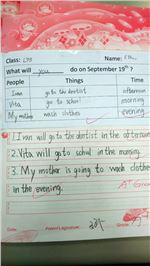 Class: Name:
What will you do on September 19th ?
People Things Time
Ivan go to the dentist afternoon
Vita go to school morning
My mother wash clothes evening
1. Ivan will go to the dentist in the afternoon
2. Vita will go to school in the morning.
3. My mother is going to wash clothes
in the evening.
A+ Good
Date: Parent Signature: Grade: